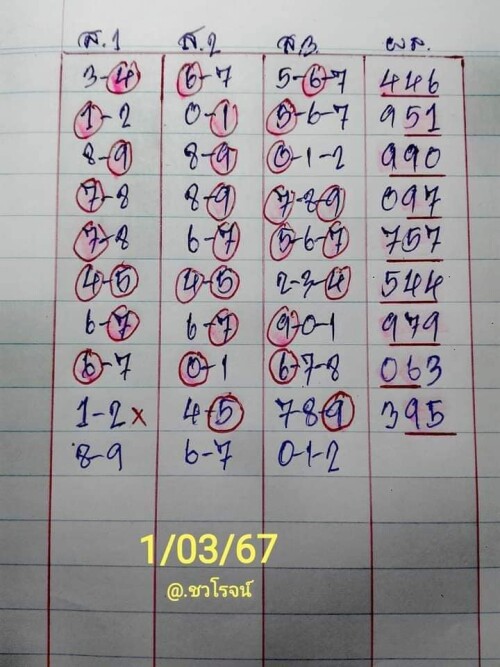 ส.1 ส.2 ส.3 ผส.
3-4 6-7 5-6-7 446
1-2 0-1 5-6-7 951
8-9 8-9 0-1-2 990
7-8 8-9 7-8-9 097
7-8 6-7 5-6-7 757
4-5 4-5 2-3-4 544
6-7 6-7 9-0-1 979
6-7 0-1 6-7-8 063
1-2x 4-5 7-8-9 395
8-9 6-7 0-1-2
1/03/67
@.ชวโรจน์